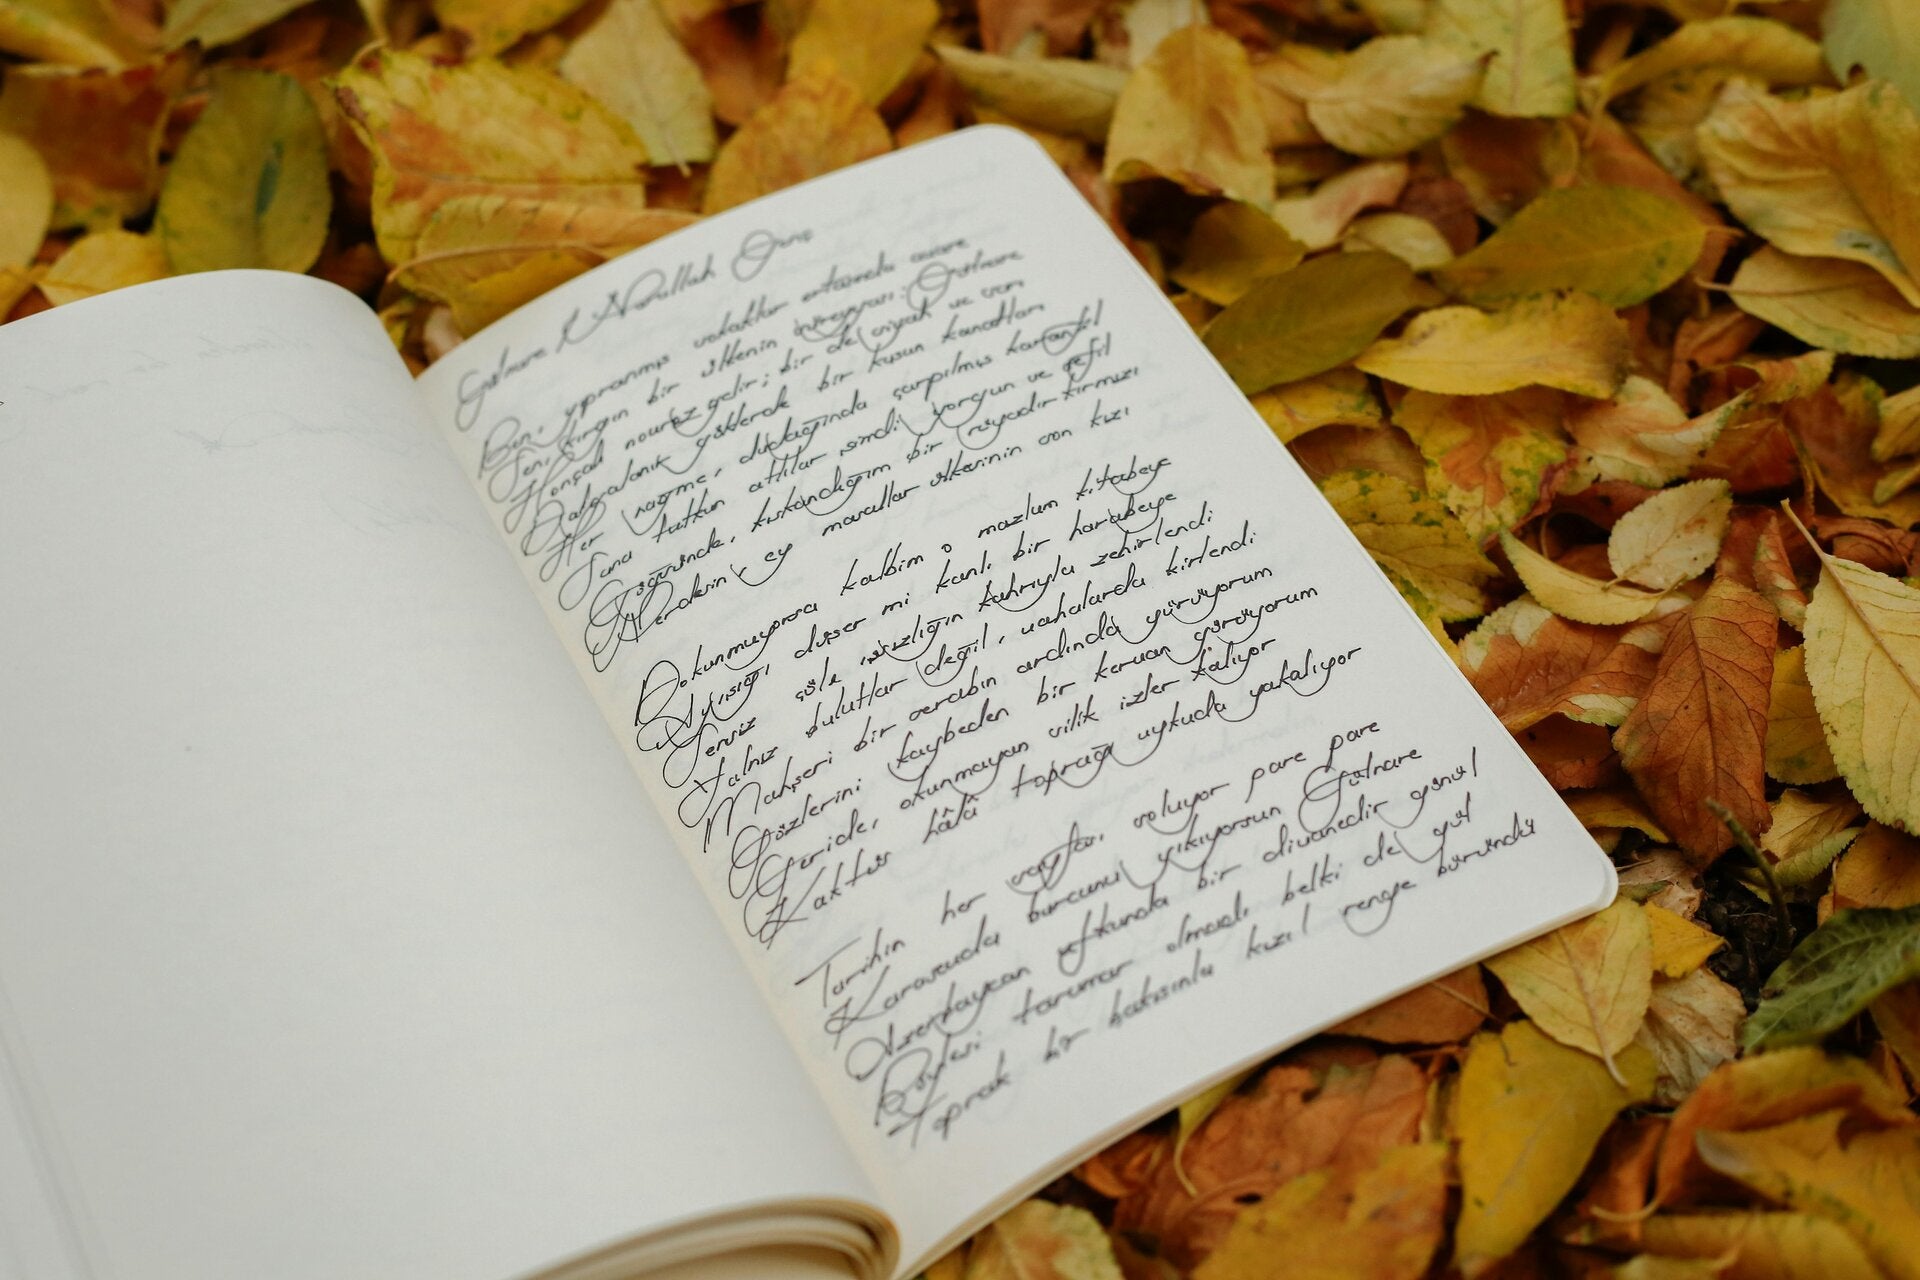 Gülnare / Nurullah Genç
Ben, yıpranmış sokaklar ortasında avare
Sen, kırgın bir ülkenin güneyvarı: Gülnare
Hançalı nevruz gelir; bir de siyah ve van
Dalgalanır göklerde bir kuşun kanatları
Her nağme, dudağında çarpılmış karanfil
Sana tutkun atlılar şimdi yorgun ve sefil
Göğsünde, kıskandığım bir rüyadır kırmızı
Nerdesin ey masallar ülkesinin son kızı
Dokunmuyorsa kalbim o mazlum kitabeye
Ayışığı düşer mi kanlı bir harabeye
Sensiz çöle ıssızlığın kahrıyla zehirlendi
Yalnız bulutlar değil, vahalarda kirlendi
Mahşeri bir serabın ardında yürüyorum
Gözlerini kaybeden bir kervan görüyorum
Geride, okunmayan silik izler kalıyor
Kaktüs hâlâ toprağı uykuda yakalıyor
Tarihin her sayfası soluyor pare pare
Karasuda burcunu yıkıyorsun Gülnare
Azerbaycan ufkunda bir divanedir gönül
Böylesi tarumar olmadı belki de gül
Toprak bir bakışınla kızıl renge büründü